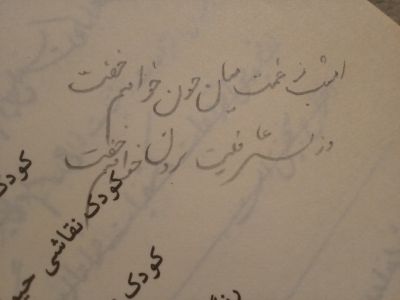 امشب ز غمت میان خون خواهم خفت
وز بستر عافیت برون خواهم خفت
کودکی نقاشی
کودکی